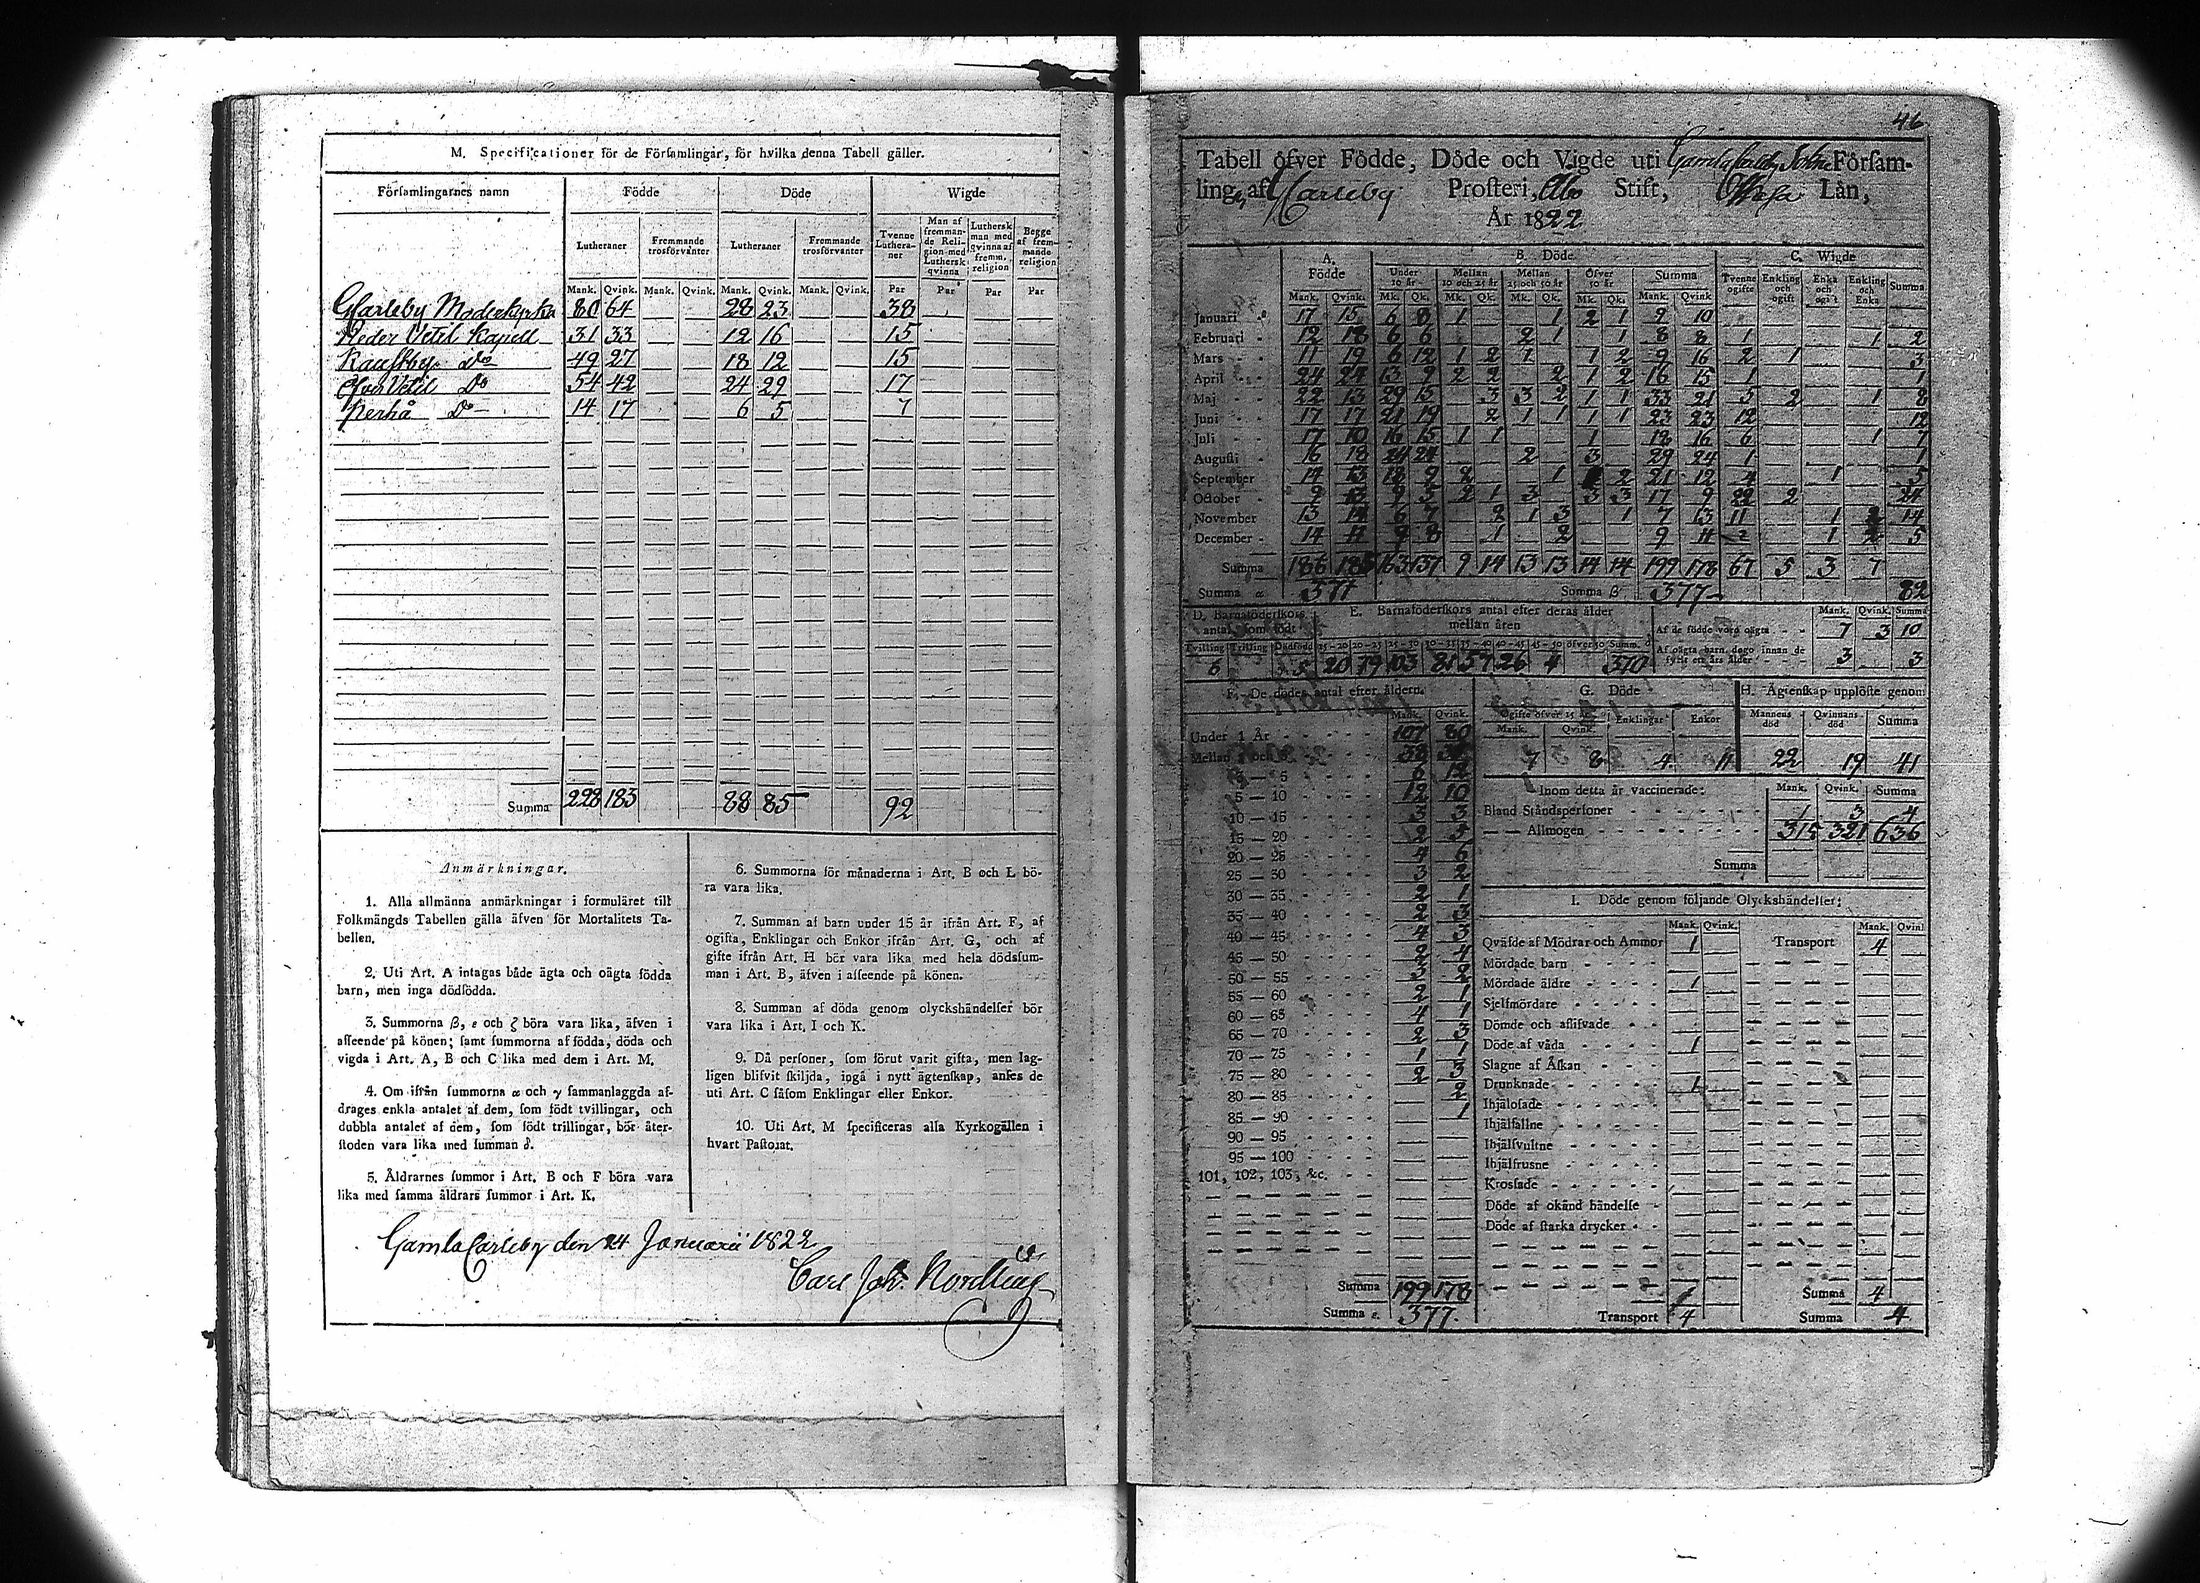 M. Specificationer för de Församlingar, för hvilka denna Tabell gäller.
Församlingarnes namn Födde Döde Wigde
Lutheraner Fremmande trosförvanter Lutheraner Fremmande trosförvanter Tvenne Lutheraner Man af fremmande Religion med Luthersk qvinna Luthersk man med qvinna af fremm. religion Begge af fremmande religion
Mank. Qvink. Mank. Qvink. Mank. Qvink. Mank. Qvink. Par Par Par Par
GCarleby Moderkyrka 80 64 28 23 38
Neder Vetil Kapell 31 33 12 16 15
Kaustby Do 49 27 18 12 15
Öfver Vetil Do 54 42 24 29 17
Perhå Do 14 17 6 5 7
Summa 228 183 88 85 92
Anmärkningar.
1. Alla allmänna anmärkningar i formuläret till
Folkmängds Tabellen gälla äfven för Mortalitets Ta-
bellen.
2. Uti Art. A intagas både ägta och oägta födda
barn, men inga dödfödda.
3. Summorna β, ε och ζ böra vara lika, äfven i
afseende på könen; samt summorna af födda, döda och
vigda i Art. A, B och C lika med dem i Art. M.
4. Om ifrån summorna α och γ sammanlaggda af-
drages enkla antalet af dem, som födt tvillingar, och
dubbla antalet af dem, som födt trillingar, bör åter-
stoden vara lika med summan δ.
5. Åldrarnes summor i Art. B och F böra vara
lika med samma åldrars summor i Art. K.
6. Summorna för månaderna i Art. B och L bö-
ra vara lika.
7. Summan af barn under 15 år ifrån Art. F, af
ogifta, Enklingar och Enkor ifrån Art. G, och af
gifte ifrån Art. H bör vara lika med hela dödssum-
man i Art. B, äfven i afseende på könen.
8. Summan af döda genom olyckshändelser bör
vara lika i Art. I och K.
9. Då personer, som förut varit gifta, men lag-
ligen blifvit skiljda, ingå i nytt ägtenskap, anses de
uti Art. C såsom Enklingar eller Enkor.
10. Uti Art. M specificeras alla Kyrkogällen i
hvart Pastorat.
Gamla Carleby den 24 Januarii 1822
Carl Joh. Nordling
46
Tabell öfver Födde, Döde och Vigde uti Gamlacarleby Sokne Församling, af GCarleby Prosteri, Åbo Stift, Wasa Län,
År 1822
A. Födde B. Döde C. Wigde
Under 10 år Mellan 10 och 25 år Mellan 25 och 50 år Öfver 50 år Summa Tvenne ogifte Enkling och ogift Enka och ogift Enkling och Enka Summa
Mank. Qvink. Mk. Qk. Mk. Qk. Mk. Qk. Mk. Qk. Mank. Qvink
Januari 17 15 6 8 1 1 2 1 9 10
Februari 12 18 6 6 2 1 1 8 8 1 1 2
Mars 11 19 6 12 1 2 1 1 2 9 16 2 1 3
April 24 24 13 9 2 2 2 1 2 16 15 1 1
Maj 22 13 29 15 3 3 2 1 1 33 21 5 2 1 8
Juni 17 17 21 19 2 1 1 1 1 23 23 12 12
Juli 17 10 16 15 1 1 1 18 16 6 1 7
Augusti 16 18 24 24 2 3 29 24 1 1
September 14 13 18 9 2 1 2 21 12 4 1 5
October 9 13 9 5 2 1 3 3 3 17 9 22 2 24
November 13 14 6 7 2 1 3 1 7 13 11 1 14
December 14 11 9 8 1 2 9 11 2 1 5
Summa 186 185 163 137 9 14 13 13 14 14 199 178 67 5 3 7
Summa α 371 Summa β 377 82
D. Barnaföderskors antal, som födt
Tvilling Trilling Dödfödd
6 5
E. Barnaföderskors antal efter deras ålder mellan åren
15-20 20-25 25-30 30-35 35-40 40-45 45-50 öfver 50 Summ. δ
20 79 103 81 57 26 4 370
Mank. Qvink. Summa
Af de födde voro oägta 7 3 10
Af oägta barn dogo innan de fyllt ett års ålder 3 3
F. De dödes antal efter åldern.
Mank. Qvink.
Under 1 År 107 80
Mellan 1 och 3 38
3 — 5 6 12
5 — 10 12 10
10 — 15 3 3
15 — 20 2 5
20 — 25 4 6
25 — 30 3 2
30 — 35 2 1
35 — 40 2 3
40 — 45 4 3
45 — 50 2 4
50 — 55 3 2
55 — 60 2 1
60 — 65 4 1
65 — 70 2 3
70 — 75 1 1
75 — 80 2 3
80 — 85 2
85 — 90 1
90 — 95
95 — 100
101, 102, 103, &c.
Summa 199 178
Summa ε. 377
G. Döde
Ogifte öfver 15 år Enklingar Enkor
Mank. Qvink.
7 8 4 11
H. Ägtenskap upplöste genom
Mannens död Qvinnans död Summa
22 19 41
Inom detta år vaccinerade: Mank. Qvink. Summa
Bland Ståndspersoner 1 3 4
— — Allmogen 315 321 636
Summa
I. Döde genom följande Olyckshändelser:
Mank. Qvink. Mank. Qvink
Qväfde af Mödrar och Ammor 1 Transport 4
Mördade barn
Mördade äldre 1
Sjelfmördare
Dömde och aflifvade
Döde af våda 1
Slagne af Åskan
Drunknade 1
Ihjälosade
Ihjälfallne
Ihjälsvultne
Ihjälfrusne
Krossade
Döde af okänd händelse
Döde af starka drycker
Summa 4
Transport 4 Summa 4